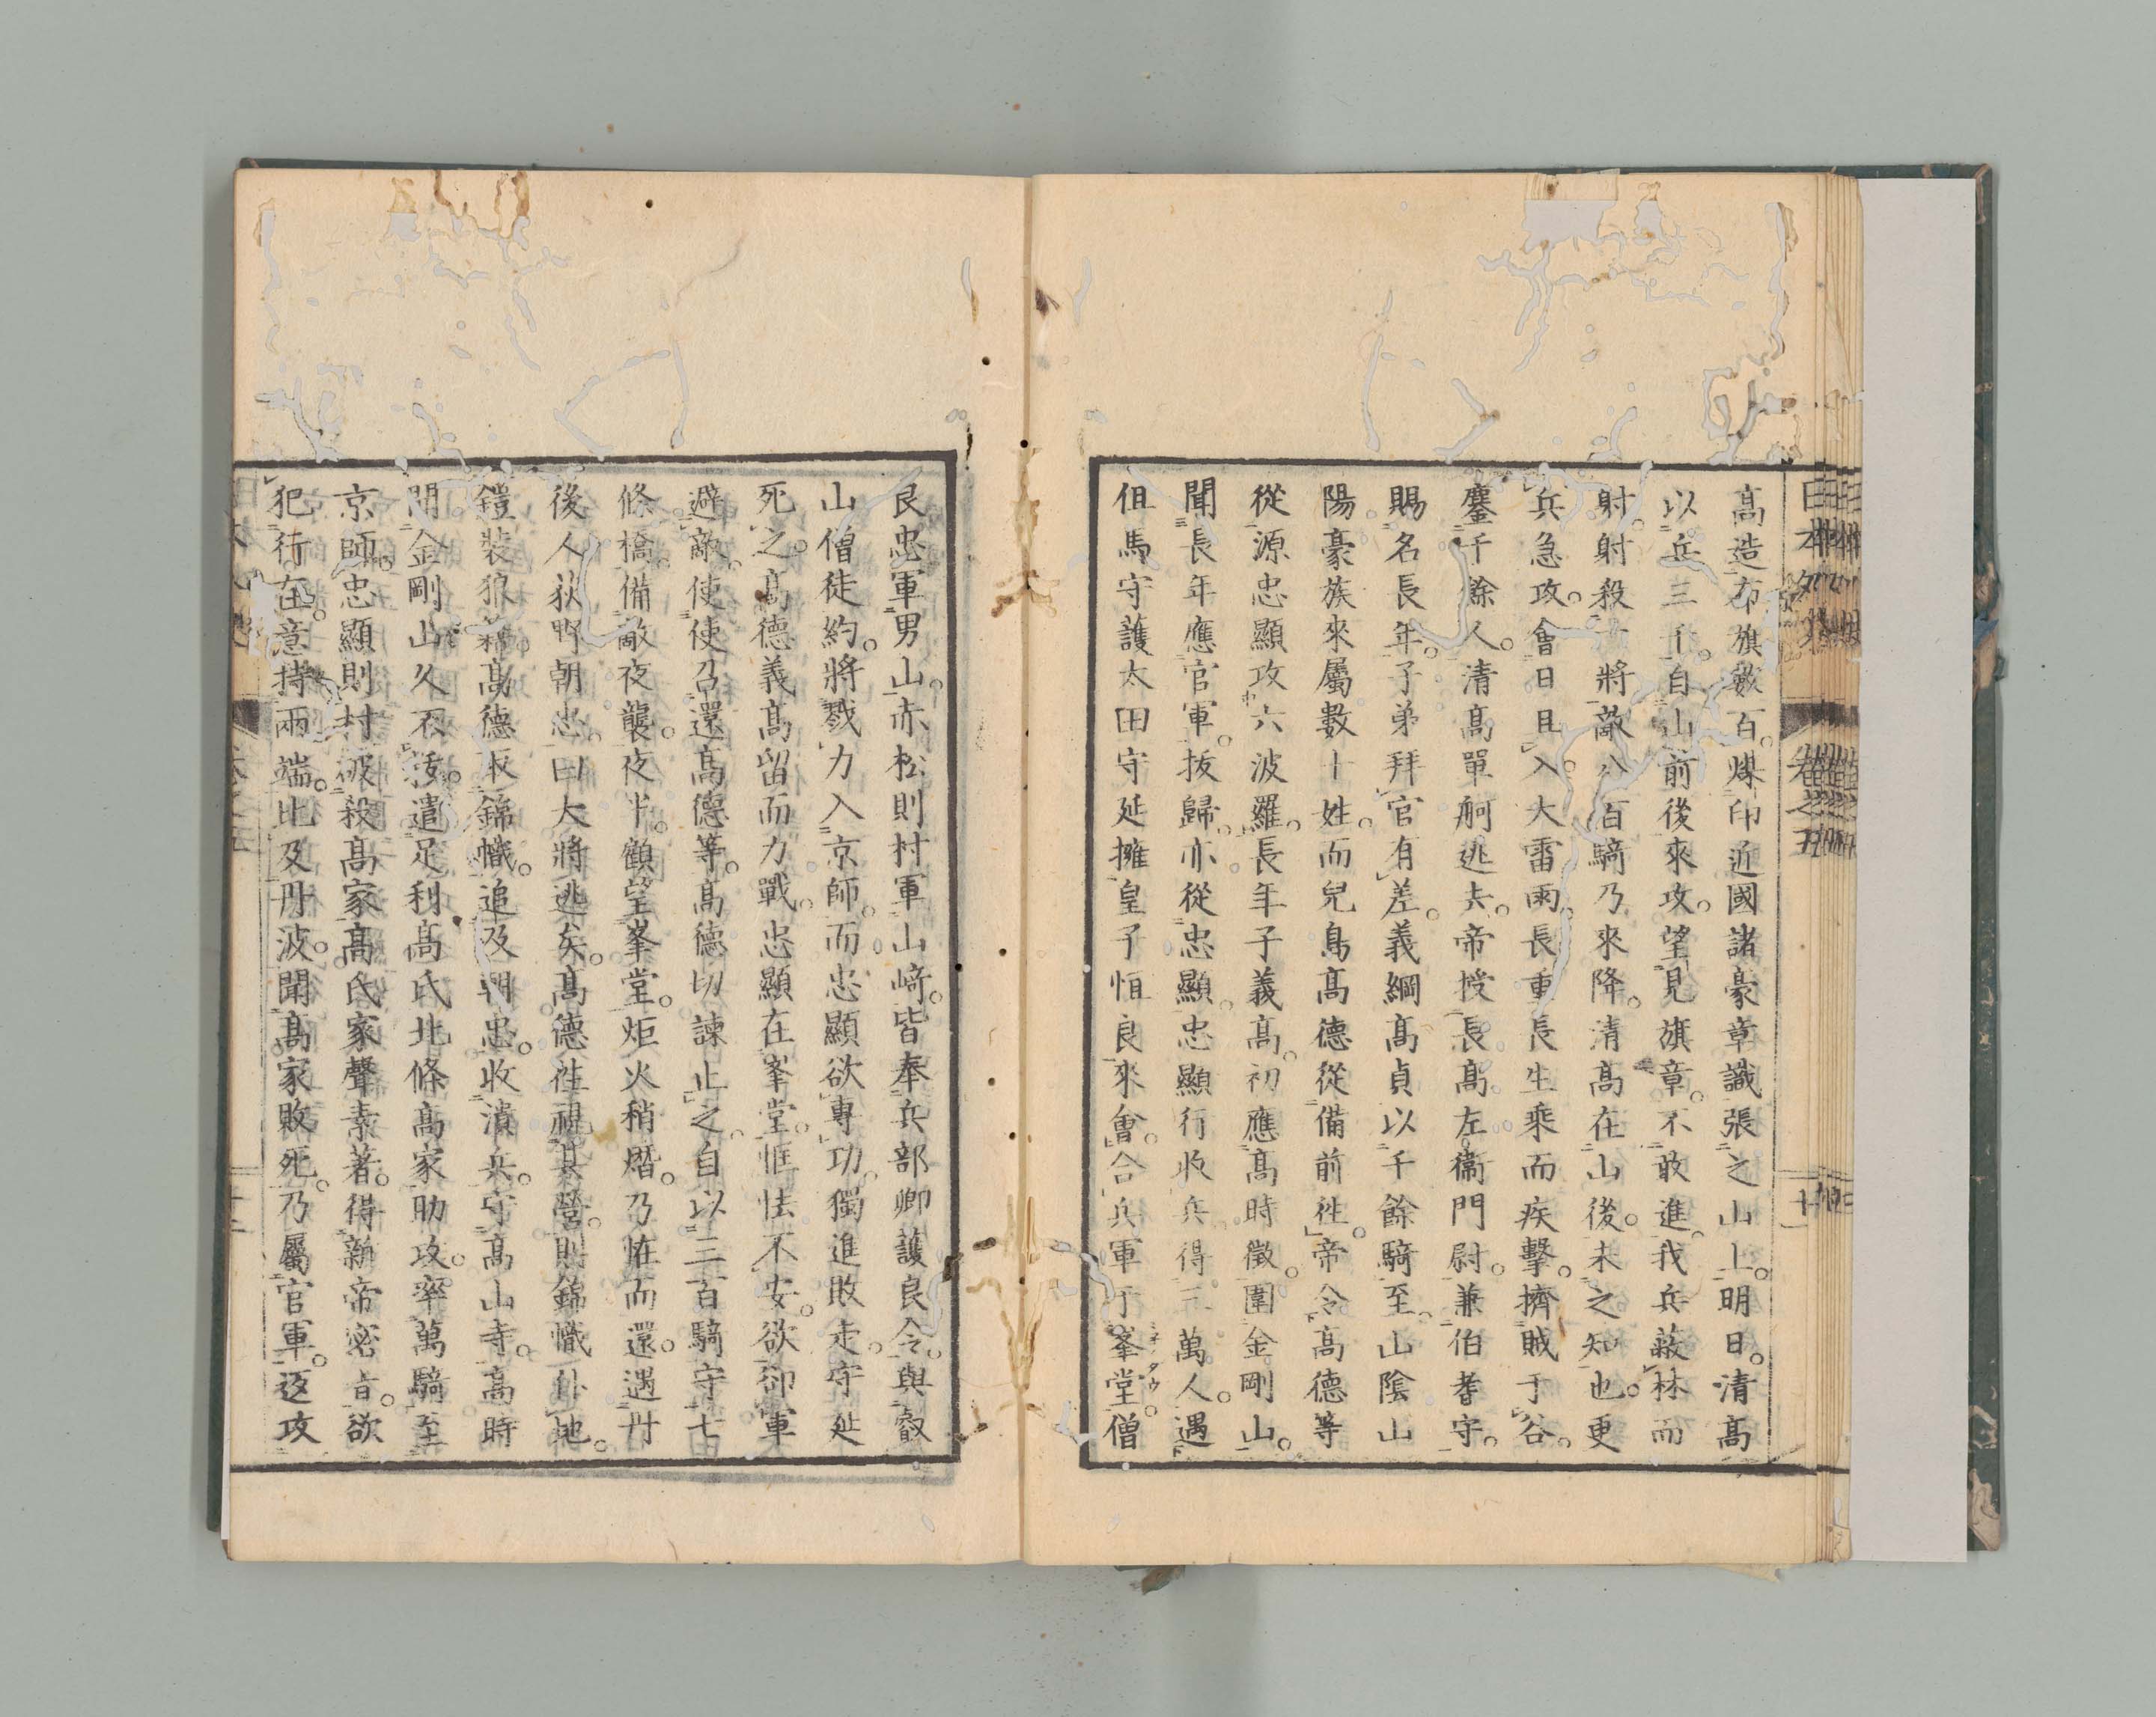 日本外史 卷之五 十一
高造布旗數百煤印近國諸豪章識張之山上。明日。清高
以兵三千。自山前後來攻。望見旗章。不敢進。我兵蔽林而
射。射殺一將敵八百騎乃來降。清高在山後。未之知也。更
兵急攻。會日且入。大雷雨。長重長生乘而疾擊。擠賊于谷。
鏖千餘人。清高單舸逃去。帝授長高左衞門尉。兼伯耆守。
賜名長年。子弟拜官有差。義綱高貞以千餘騎至。山陰山
陽豪族來屬數十姓。而兒島高德從備前徃。帝令高德等
從源忠顯攻六波羅。長年子義高。初應高時徵。圍金剛山。
聞長年應官軍。拔歸。亦從忠顯。忠顯行收兵。得三萬人。遇
但馬守護太田守延擁皇子恒良來會。合兵軍于峯堂。僧
良忠軍男山。赤松則村軍山崎。皆奉兵部卿護良令。與叡
山僧徒約。將戮力入京師。而忠顯欲專功。獨進敗走。守延
死之。高德義高留而力戰。忠顯在峯堂。恇怯不安。欲卻軍
避敵。使使召還高德等。高德切諫止之。自以二百騎守七
條橋。備敵夜襲。夜半。顧望峯堂。炬火稍熸。乃恠而還。遇丹
後人荻野朝忠。曰大將逃矣。高德徃視其營。則錦幟仆地。
鎧裝狼藉。高德收錦幟。追及朝忠。收潰兵。守高山寺。高時
聞金剛山久不拔。遣足利高氏北條高家助攻。率萬騎至
京師。忠顯則村破殺高家。高氏家聲素著。得新帝密旨。欲
犯行在。意持兩端。比及丹波。聞高家敗死。乃屬官軍。返攻